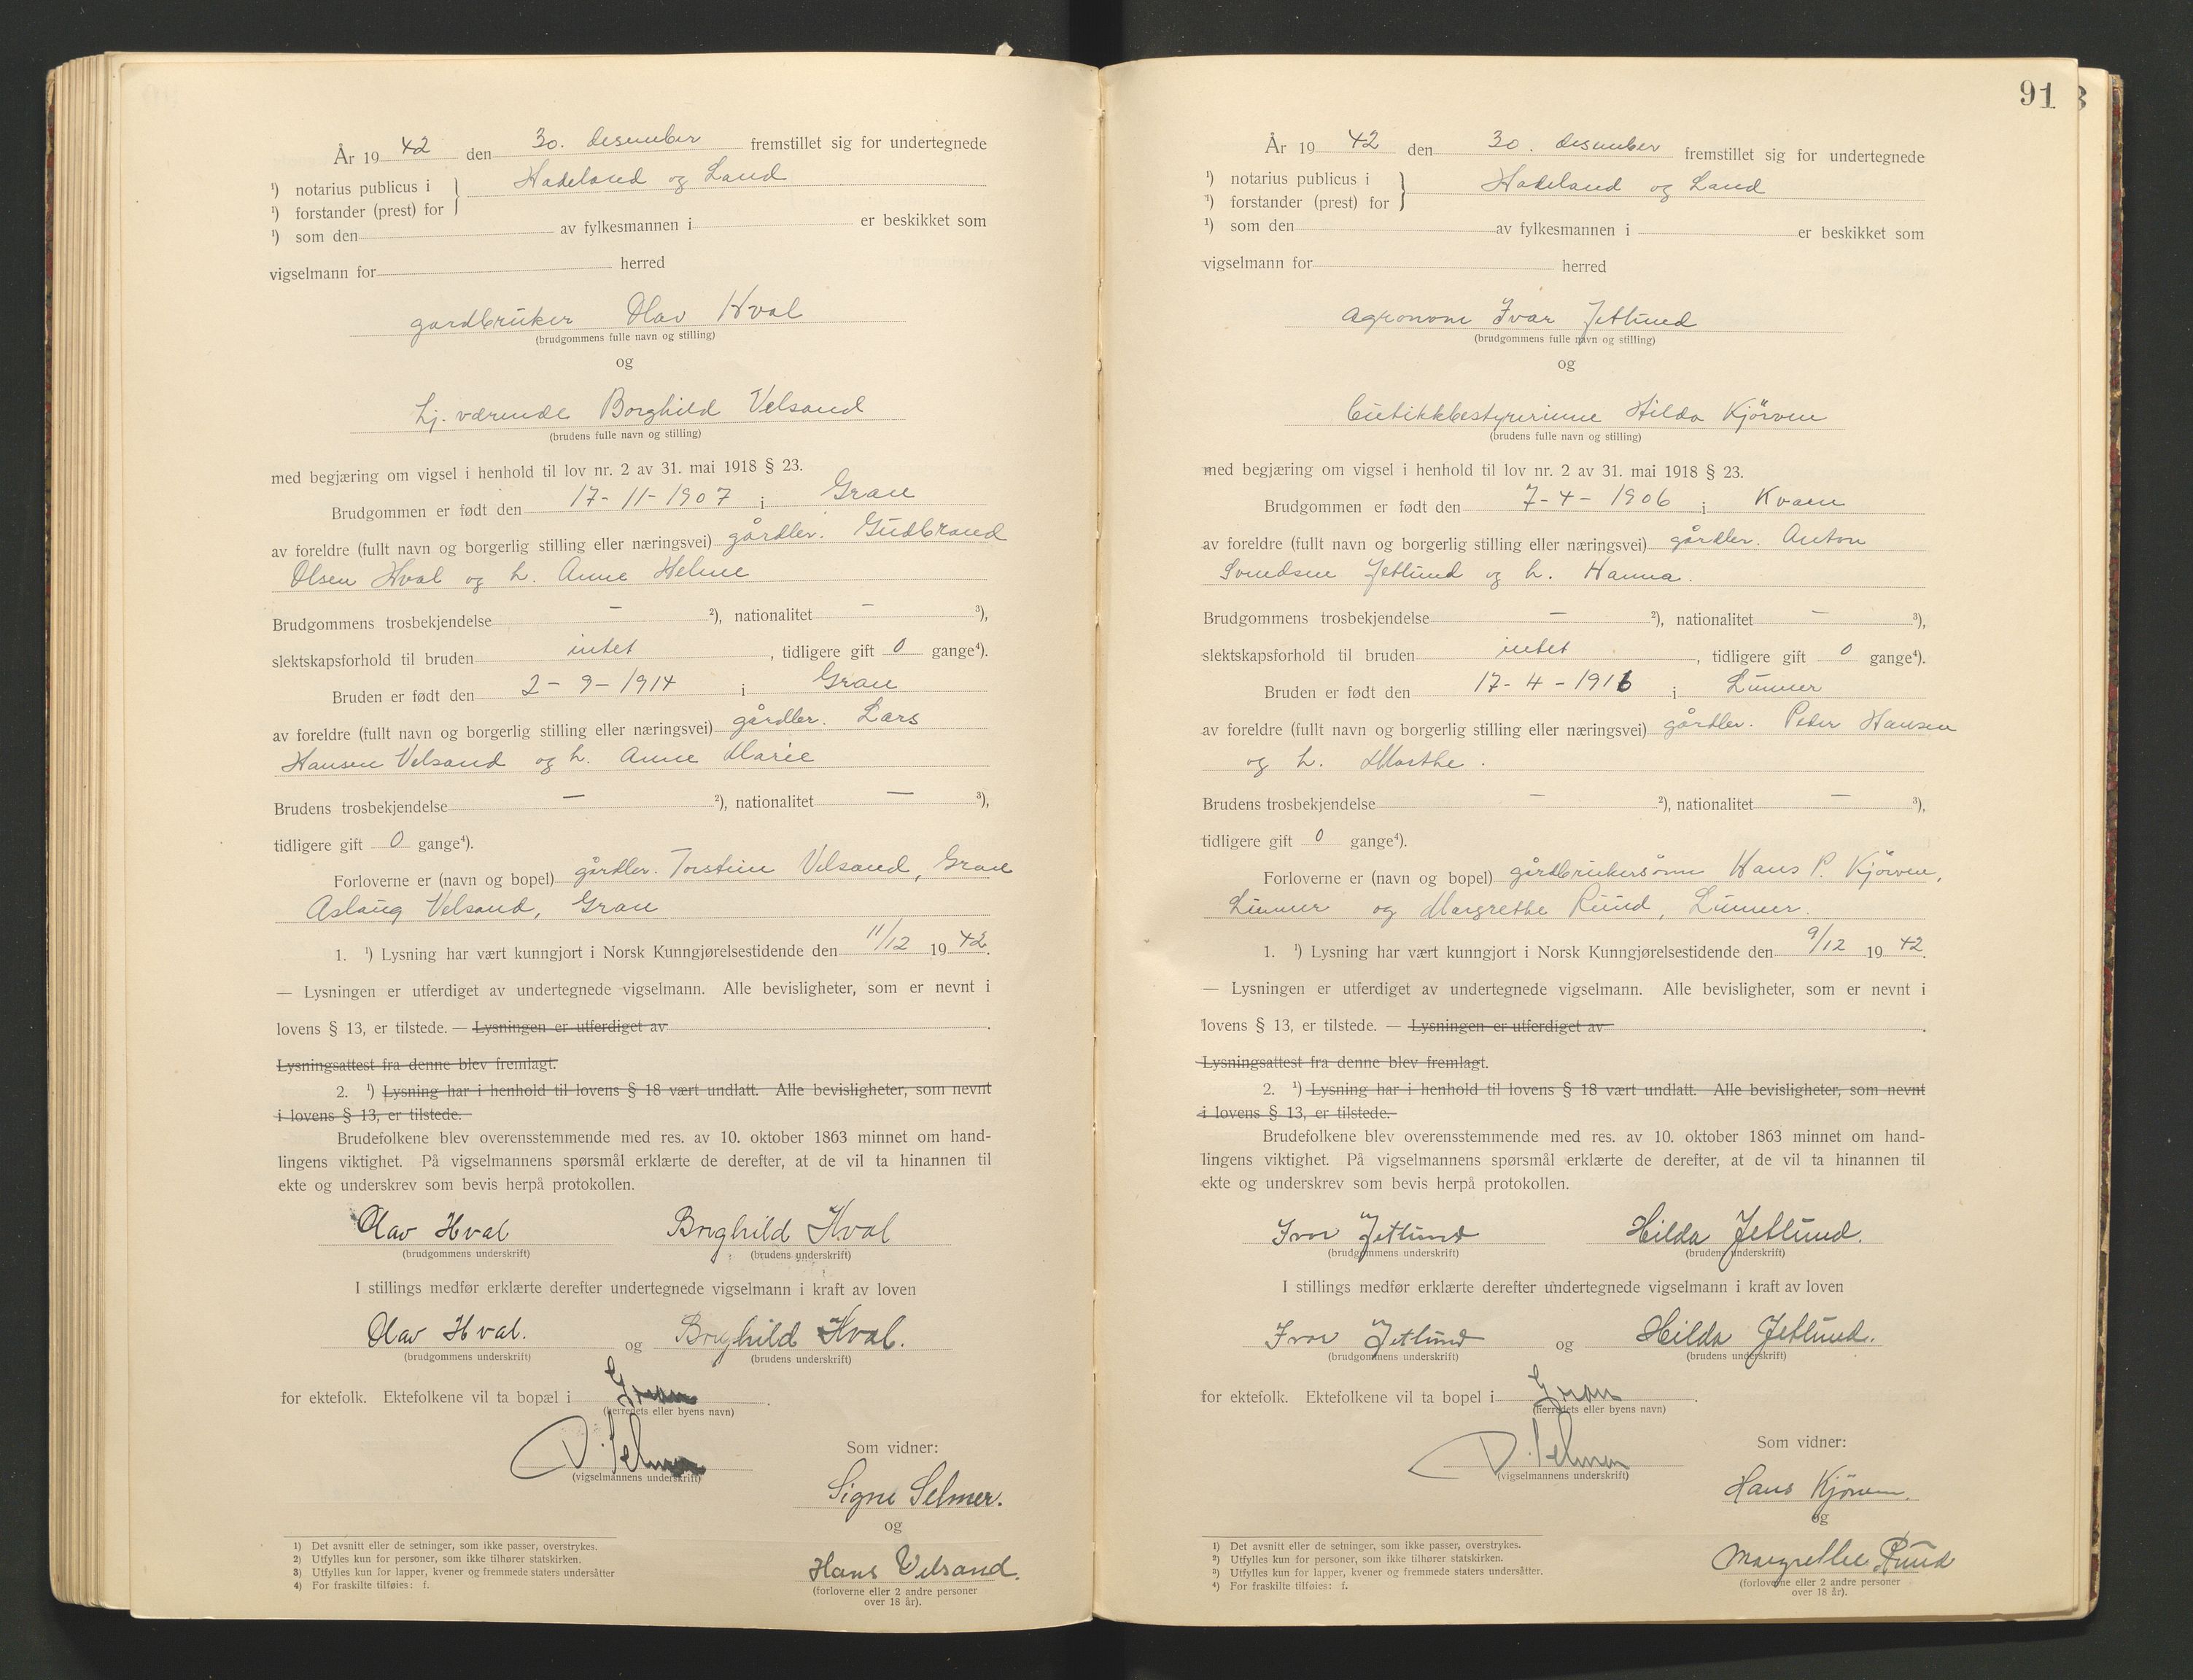 År 19 42 den 30. desember fremstillet sig for undertegnede
¹) notarius publicus i } Hadeland og Land
¹) forstander (prest) for
¹) som den av fylkesmannen i er beskikket som
vigselmann for herred
gardbruker Olav Hval
(brudgommens fulle navn og stilling)
og
hj. værende Borghild Velsand
(brudens fulle navn og stilling)
med begjæring om vigsel i henhold til lov nr. 2 av 31. mai 1918 § 23.
Brudgommen er født den 17-11-1907 i Gran
av foreldre (fullt navn og borgerlig stilling eller næringsvei) gårdbr. Gudbrand
Olsen Hval og h. Anne Helene
Brudgommens trosbekjendelse — ²), nationalitet — ³),
slektskapsforhold til bruden intet, tidligere gift 0 gange⁴).
Bruden er født den 2-9-1914 i Gran
av foreldre (fullt navn og borgerlig stilling eller næringsvei) gårdbr. Lars
Hansen Velsand og h. Anne Marie
Brudens trosbekjendelse — ²), nationalitet — ³),
tidligere gift 0 gange⁴).
Forloverne er (navn og bopel) gårdbr. Torstein Velsand, Gran
Aslaug Velsand, Gran
1. ¹) Lysning har vært kunngjort i Norsk Kunngjørelsestidende den 11/12 19 42.
— Lysningen er utferdiget av undertegnede vigselmann. Alle bevisligheter, som er nevnt i
lovens § 13, er tilstede. — Lysningen er utferdiget av .
Lysningsattest fra denne blev fremlagt.
2. ¹) Lysning har i henhold til lovens § 18 vært undlatt. Alle bevisligheter, som nevnt
i lovens § 13, er tilstede.
Brudefolkene blev overensstemmende med res. av 10. oktober 1863 minnet om hand-
lingens viktighet. På vigselmannens spørsmål erklærte de derefter, at de vil ta hinannen til
ekte og underskrev som bevis herpå protokollen.
Olav Hval Borghild Hval
(brudgommens underskrift) (brudens underskrift)
I stillings medfør erklærte derefter undertegnede vigselmann i kraft av loven
Olav Hval. og Borghild Hval.
(brudgommens underskrift) (brudens underskrift)
for ektefolk. Ektefolkene vil ta bopæl i Gran.
(herredets eller byens navn)
D. Selmer
(vigselmannens underskrift)
Som vidner:
Signe Selmer.
og
Hans Velsand.
(forloverne eller 2 andre personer
over 18 år).
1) Det avsnitt eller de setninger, som ikke passer, overstrykes.
2) Utfylles kun for personer, som ikke tilhører statskirken.
3) Utfylles kun for lapper, kvener og fremmede staters undersåtter
4) For fraskilte tilføies: f.
91
År 19 42 den 30. desember fremstillet sig for undertegnede
¹) notarius publicus i } Hadeland og Land
¹) forstander (prest) for
¹) som den av fylkesmannen i er beskikket som
vigselmann for herred
agronom Ivar Jetlund
(brudgommens fulle navn og stilling)
og
butikkbestyrerinne Hilda Kjørven
(brudens fulle navn og stilling)
med begjæring om vigsel i henhold til lov nr. 2 av 31. mai 1918 § 23.
Brudgommen er født den 7-4-1906 i Kvam
av foreldre (fullt navn og borgerlig stilling eller næringsvei) gårdbr. Anton
Svendsen Jetlund og h. Hanna.
Brudgommens trosbekjendelse — ²), nationalitet — ³),
slektskapsforhold til bruden intet, tidligere gift 0 gange⁴).
Bruden er født den 17-4-1916 i Lunner
av foreldre (fullt navn og borgerlig stilling eller næringsvei) gårdbr. Peder Hansen
og h. Marthe.
Brudens trosbekjendelse — ²), nationalitet — ³),
tidligere gift 0 gange⁴).
Forloverne er (navn og bopel) gårdbrukersønn Hans P. Kjørven,
Lunner og Margrethe Ruud, Lunner.
1. ¹) Lysning har vært kunngjort i Norsk Kunngjørelsestidende den 9/12 19 42.
— Lysningen er utferdiget av undertegnede vigselmann. Alle bevisligheter, som er nevnt i
lovens § 13, er tilstede. — Lysningen er utferdiget av .
Lysningsattest fra denne blev fremlagt.
2. ¹) Lysning har i henhold til lovens § 18 vært undlatt. Alle bevisligheter, som nevnt
i lovens § 13, er tilstede.
Brudefolkene blev overensstemmende med res. av 10. oktober 1863 minnet om hand-
lingens viktighet. På vigselmannens spørsmål erklærte de derefter, at de vil ta hinannen til
ekte og underskrev som bevis herpå protokollen.
Ivar Jetlund Hilda Jetlund.
(brudgommens underskrift) (brudens underskrift)
I stillings medfør erklærte derefter undertegnede vigselmann i kraft av loven
Ivar Jetlund og Hilda Jetlund.
(brudgommens underskrift) (brudens underskrift)
for ektefolk. Ektefolkene vil ta bopel i Gran.
(herredets eller byens navn)
D. Selmer
(vigselmannens underskrift)
Som vidner:
Hans Kjørven.
og
Margrethe Ruud
(forloverne eller 2 andre personer
over 18 år).
¹) Det avsnitt eller de setninger, som ikke passer, overstrykes.
²) Utfylles kun for personer, som ikke tilhører statskirken.
³) Utfylles kun for lapper, kvener og fremmede staters undersåtter.
⁴) For fraskilte tilføies: f.